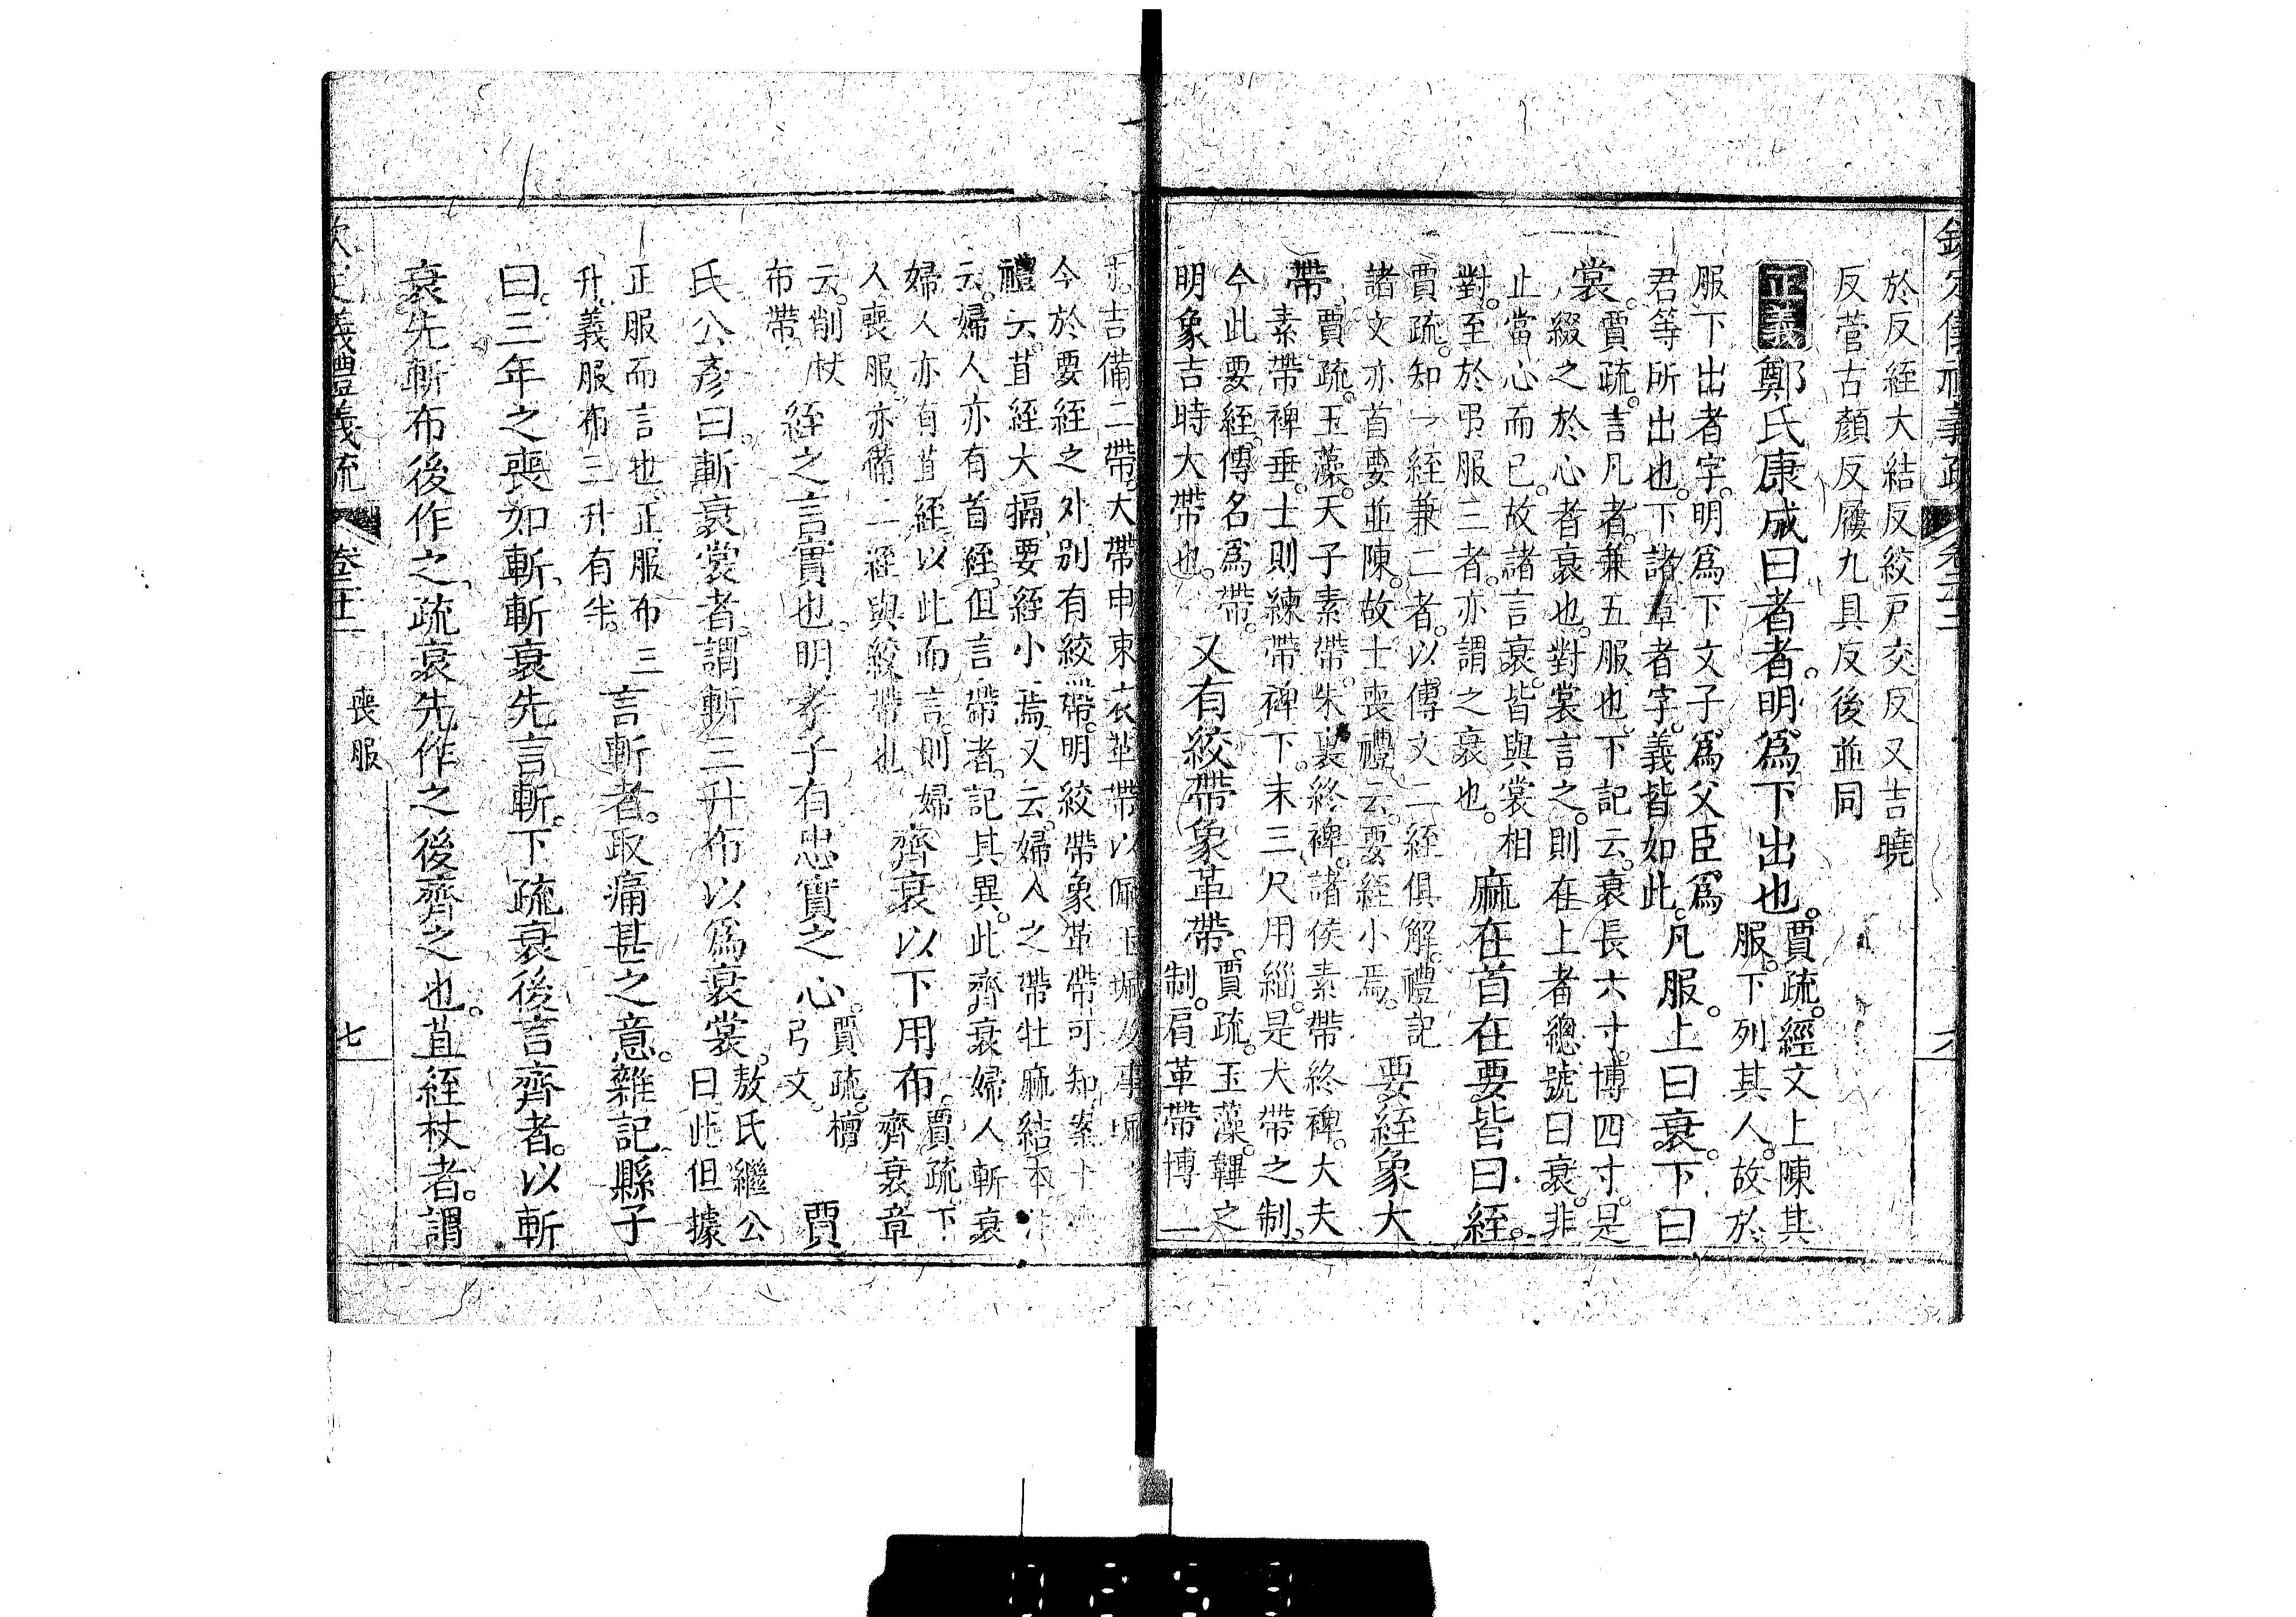 於反絰大結反絞戸交反又吉曉
反菅古顏反屨九具反後並同
正義鄭氏康成曰者者。明爲下出也。賈疏。經文上陳其
服。下列其人。故於
服下出者字。明爲下文子爲父臣爲
君等所出也。下諸章者字。義皆如此。凡服。上曰衰。下曰
裳。賈疏。言凡者。兼五服也。下記云。衰長六寸。博四寸。是
綴之於心者衰也。對裳言之。則在上者總號曰衰。非
止當心而已。故諸言衰。皆與裳相
對。至於弔服三者。亦謂之衰也。麻在首在要皆曰絰。
賈疏。知一絰兼二者。以傳文二絰俱解。禮記
諸文亦首要並陳。故士喪禮云。要絰小焉。要絰象大
帶。賈疏。玉藻。天子素帶。朱裏終裨。諸侯素帶終裨。大夫
素帶裨垂。士則練帶裨下。末三尺用緇。是大帶之制。
今此要絰。傳名爲帶。
明象吉時大帶也。又有絞帶象革帶。賈疏。玉藻。韠之
制。肩革帶博二
寸。吉備二帶。大帶申束衣。革帶以佩玉珮及事珮
今於要絰之外別有絞帶。明絞帶象革帶可知。案士
禮云。苴絰大搹。要絰小焉。又云。婦人之帶牡麻結本。注
云。婦人亦有首絰。但言帶者。記其異。此齊衰婦人斬衰
婦人亦有苴絰。以此而言。則婦
人喪服亦備二絰與絞帶也齊衰以下用布。賈疏。下
齊衰章
云。削杖
布帶絰之言實也。明孝子有忠實之心。賈疏。檀
弓文。賈
氏公彥曰。斬衰裳者。謂斬三升布以爲衰裳。敖氏繼公
曰此但據
正服而言也正服布三
升。義服布三升有半。言斬者。取痛甚之意。雜記。縣子
曰。三年之喪如斬。斬衰先言斬。下疏衰後言齊者。以斬
衰先斬布後作之。疏衰先作之後齊之也。苴絰杖者。謂
喪服
七